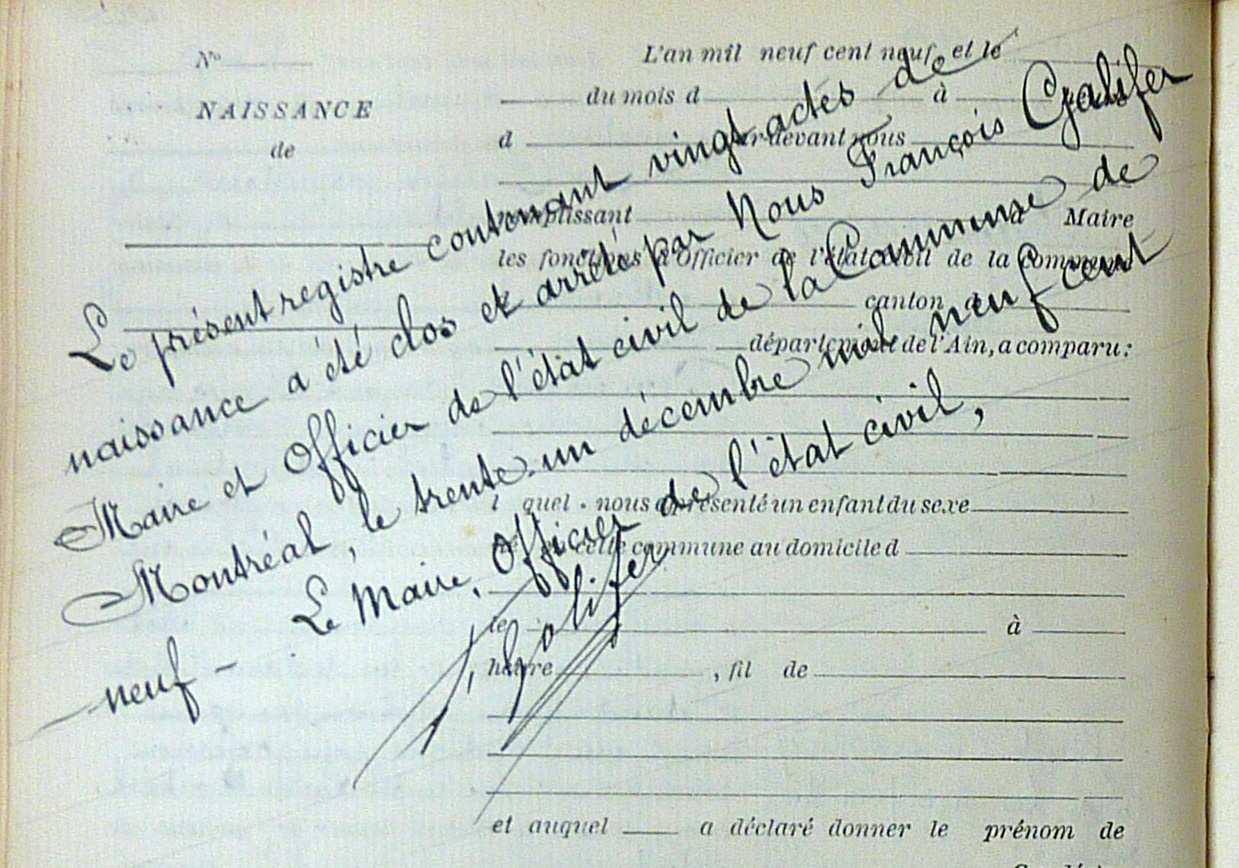 N°
NAISSANCE
de
L'an mil neuf cent neuf, et le
du mois d à
d par-devant nous
remplissant à Maire
les fonctions d'Officier de l'état civil de la Commune
canton d
département de l'Ain, a comparu :
l quel nous a présenté un enfant du sexe
né en cette commune au domicile d
le à
heure , fil de
et auquel a déclaré donner le prénom de
Le présent registre contenant vingt actes de
naissance a été clos et arrêté par Nous François Galifer
Maire et Officier de l'état civil de la Commune de
Montréal, le trente-un décembre mil neuf cent
neuf -
Le Maire, Officier de l'état civil,
F. Galifer